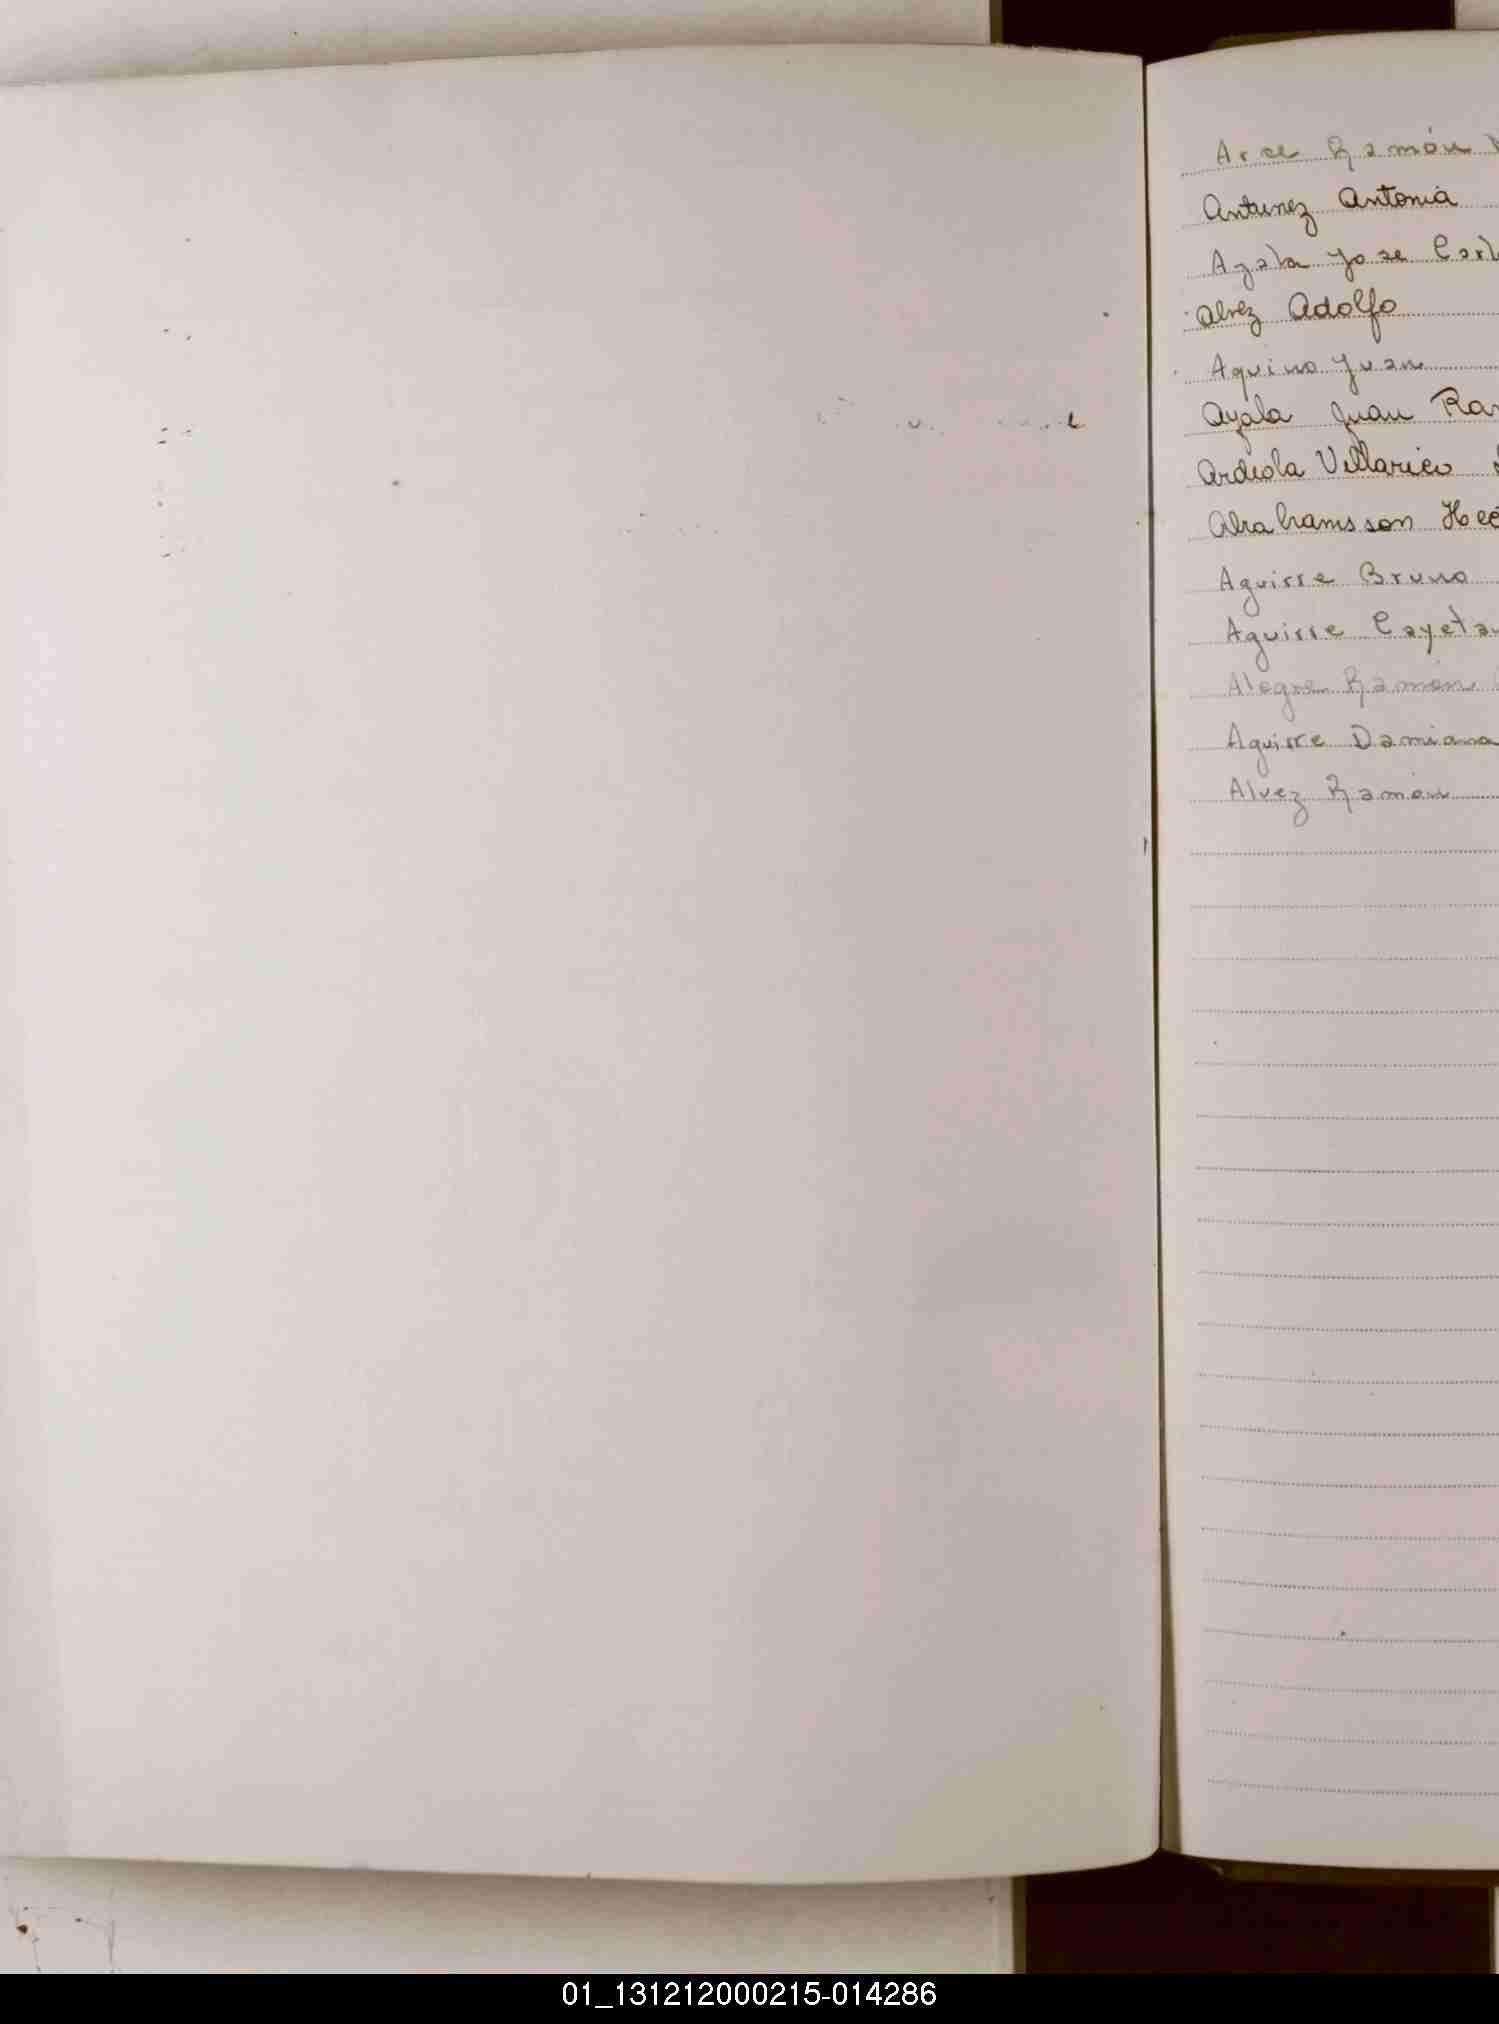 Arce Ramón
Antunez Antonia
Ayala Jose Carl
Alvez Adolfo
Aquino Juan
Ayala Juan Ra
Ardiola Villarico
Abrahamsson Hec
Aguirre Bruno
Aguirre Cayeta
Alegre Ramón
Aguirre Damiana
Alvez Ramón
01_131212000215-014286